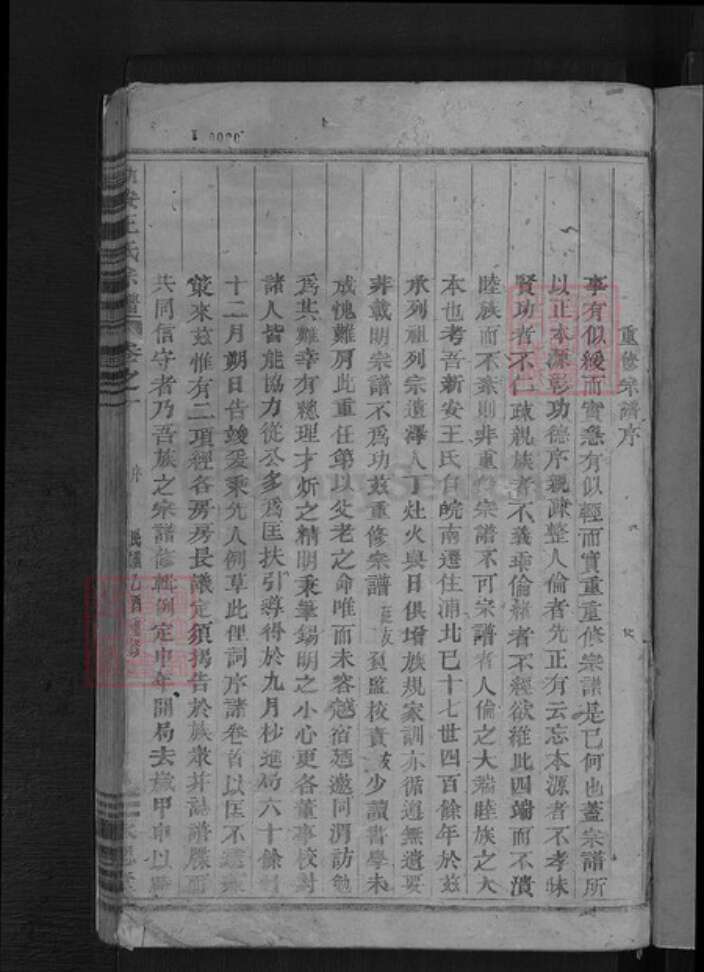 重修宗譜序
事有似緩而實急有似輕而實重重修宗譜是已何也蓋宗譜所
以正本源彰功德序親疎整人倫者先正有云忘本源者不孝昧
賢功者不仁疎親族者不義乖倫敘者不經欲維此四端而不潰
睦族而不紊則非重修宗譜不可宗譜者人倫之大端睦族之大
本也考吾新安王氏自皖南遷住浦北已十七世四百餘年於茲
承列祖列宗遺澤人丁灶火與日俱增族規家訓亦循過無遺要
非載明宗譜不為功茲重修宗譜 友負監校責 少讀書學未
成愧難肩此重任第以父老之命唯而未容越宿廼邀同潤訪勉
為其難幸有總理才炘之精明秉筆錫明之小心更各董事校對
諸人皆能協力從公多為匡扶引導得於九月杪進局六十餘
十二月朔日告竣爰秉先人例草此俚詞序諸卷首以匡不逮
策來茲惟有二項經各房房長議定須揭告於族眾并誌譜牒
共同信守者乃吾族之宗譜修輯例定申年開局去歲甲申以
安王氏宗譜 卷之一
序
民國乙酉重修